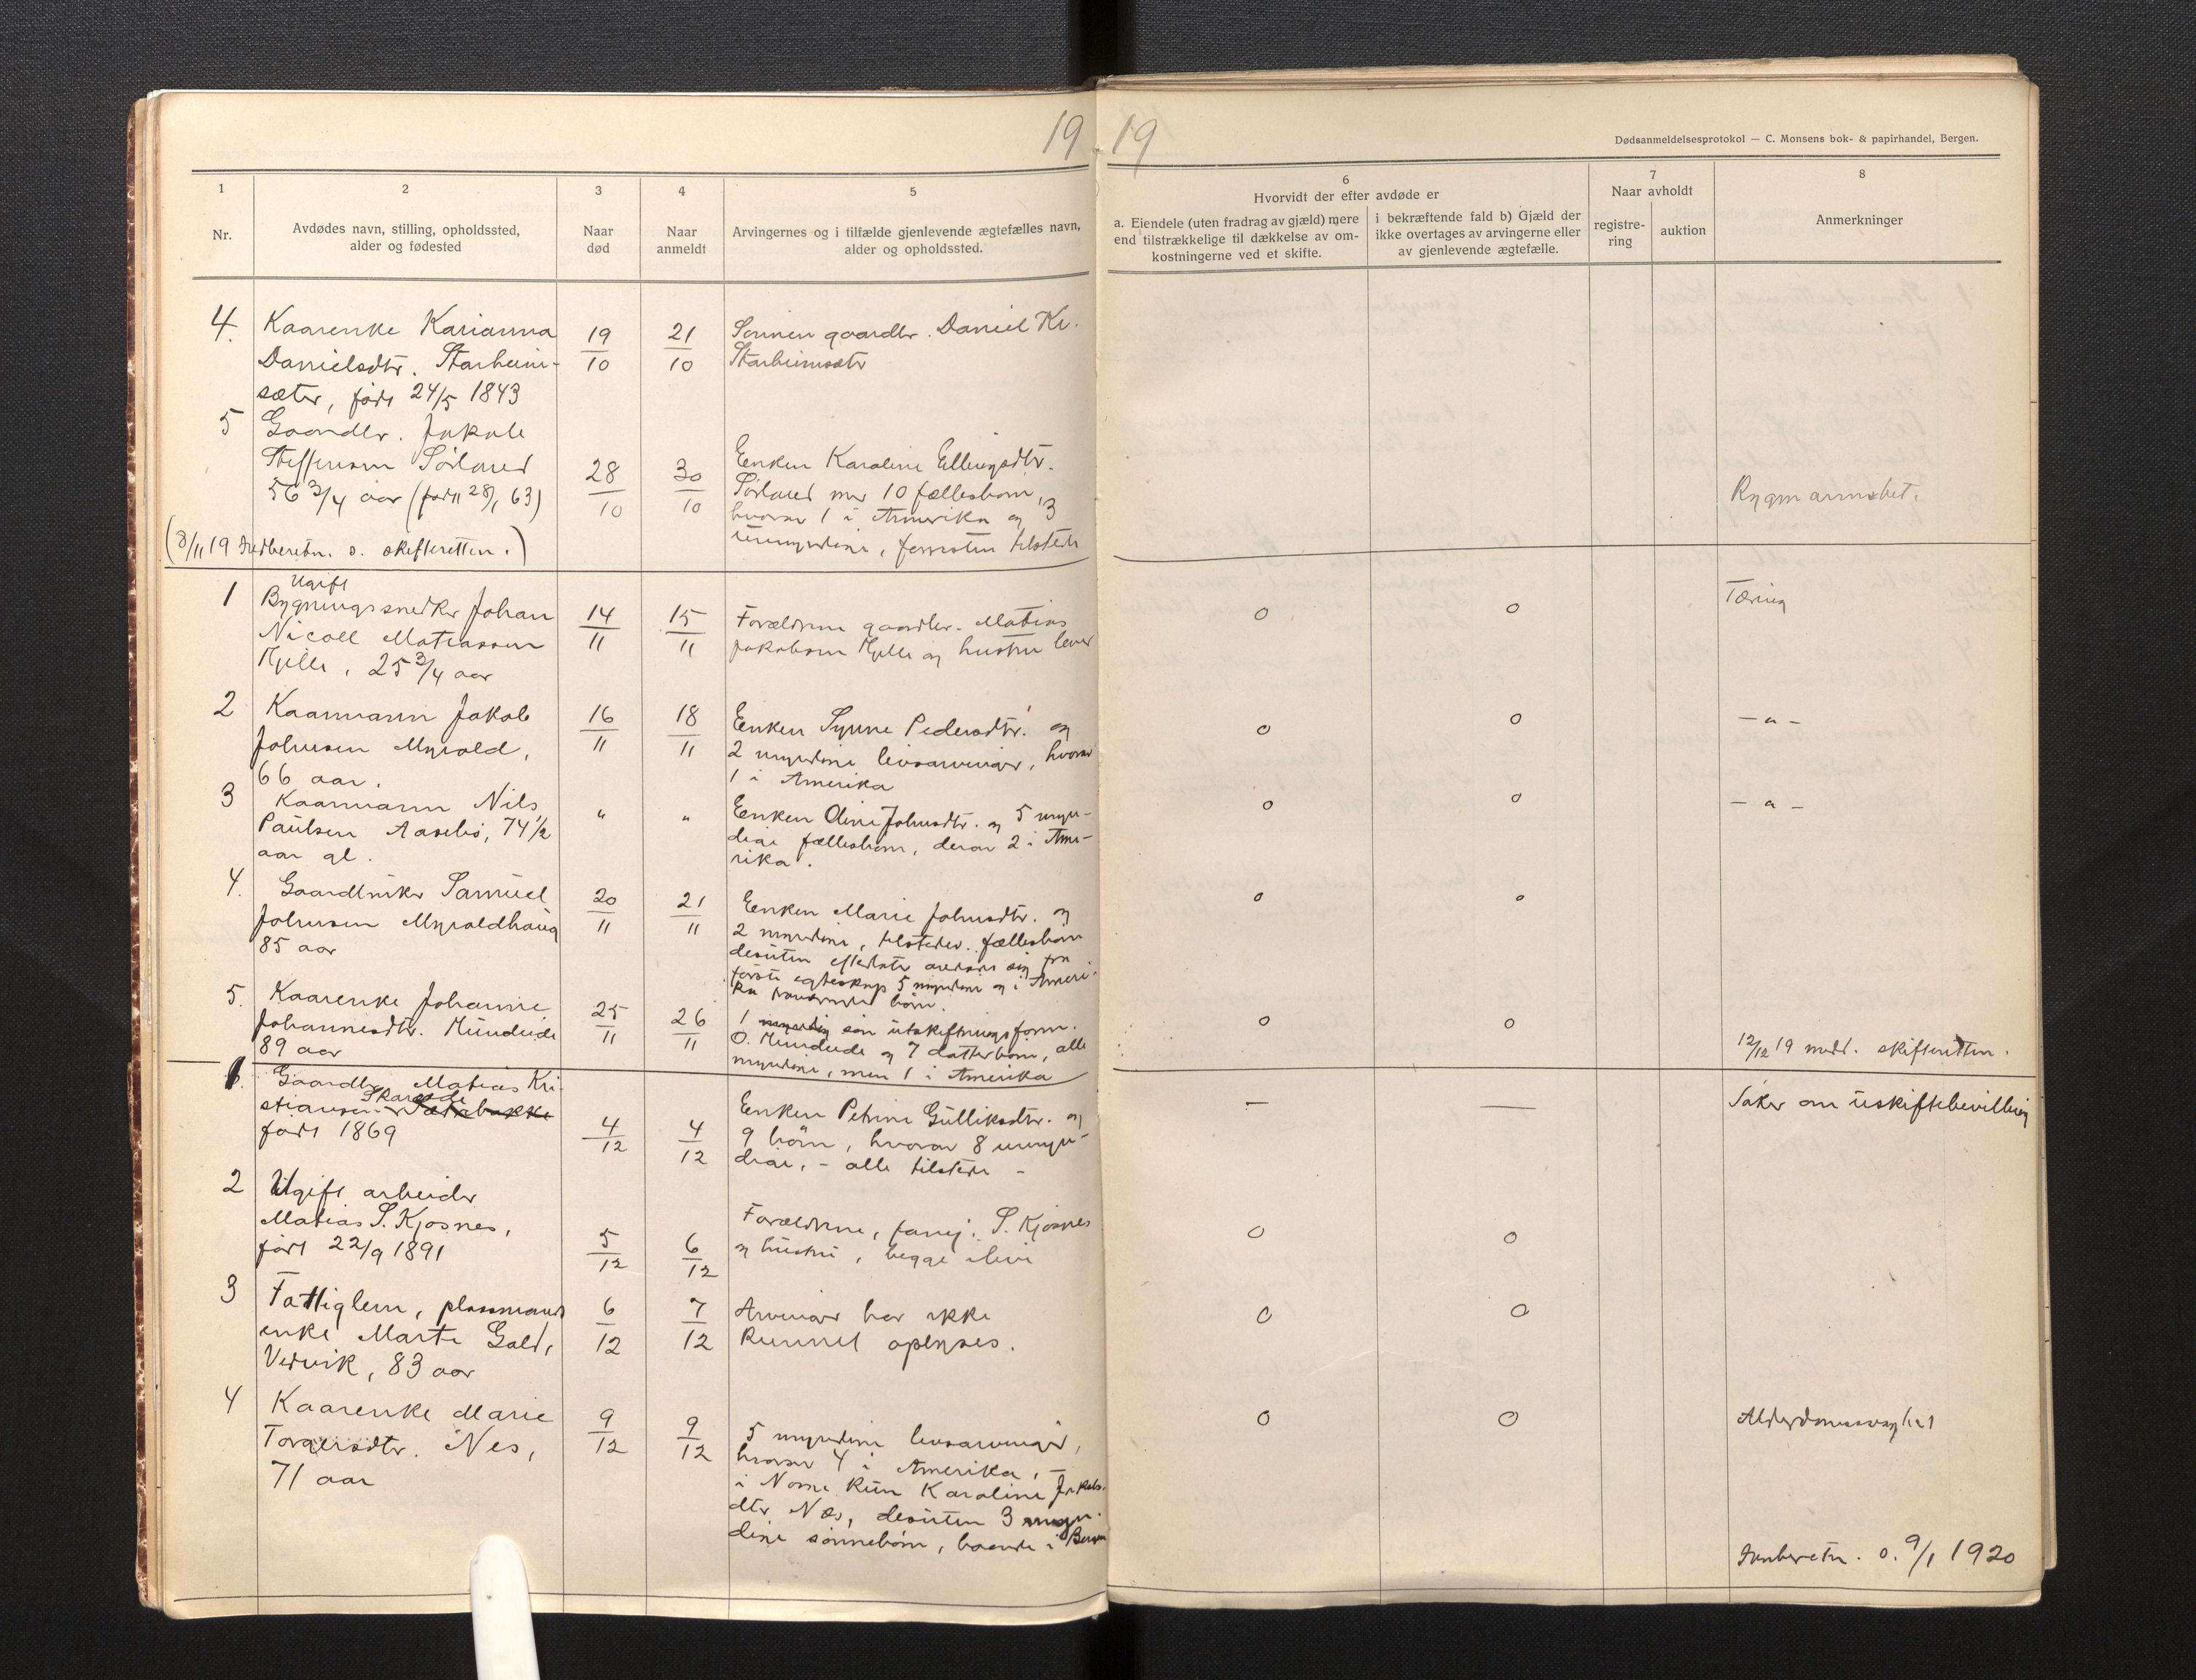 19
19
Dødsanmeldelsesprotokol — C. Monsens bok- & papirhandel, Bergen.
1
Nr.
2
Avdødes navn, stilling, opholdssted,
alder og fødested
3
Naar
død
4
Naar
anmeldt
5
Arvingernes og i tilfælde gjenlevende ægtefælles navn,
alder og opholdssted.
6
Hvorvidt der efter avdøde er
a. Eiendele (uten fradrag av gjæld) mere
end tilstrækkelige til dækkelse av om-
kostningerne ved et skifte.
i bekræftende fald b) Gjæld der
ikke overtages av arvingerne eller
av gjenlevende ægtefælle.
7
Naar avholdt
registre-
ring
auktion
8
Anmerkninger
4.
Kaarenke Karianna
Danielsdtr. Starheim-
sæter, født 24/5 1843
19/10
21/10
Sønnen gaardbr. Daniel Kr.
Starheimsætr
5
Gaardbr. Jakob
Steffensen Sörland
56 3/4 aar (født 28/1 63)
28/10
30/10
Enken Karoline Ellingsdtr.
Sörland med 10 fællesbørn,
hvorav 1 i Amerika og 3
umyndige, forresten tilstede
Rygmarvsbet.
(8/11 19 Indberetn. s. skifteretten.)
1
Ugift
Bygningssnedker Johan
Nicoll Matiassen
Hjelle, 25 3/4 aar
14/11
15/11
Forældrene gaardbr. Matias
Jakobsen Hjelle og hustru lever
0
0
Tæring
2
Kaarmann Jakob
Johnsen Myrold,
66 aar.
16/11
18/11
Enken Synne Pedersdtr. og
2 myndige livsarvinger, hvorav
1 i Amerika
0
0
— " —
3
Kaarmann Nils
Paulsen Aasebö, 74 1/2
aar gl.
"
"
Enken Oline Johnsdtr. og 5 myn-
dige fællesbørn, derav 2 i Ame-
rika.
0
0
— " —
4.
Gaardbruker Samuel
Johnsen Myroldhaug
85 aar
20/11
21/11
Enken Marie Johnsdtr. og
2 myndige, tilstedev. fællesbørn
desuten efterlater avdøde sig fra
første egteskap 5 myndige og i Ameri-
ka boende børn.
0
0
5.
Kaarenke Johanne
Johannesdtr. Mundeide
89 aar
25/11
26/11
1 myndig søn utskiftningsform.
O. Mundeide og 7 datterbørn, alle
myndige, men 1 i Amerika
0
0
12/12 19 medd. skifteretten.
1.
Gaardbr. Matias Kri-
stiansen Sætrebakke
født 1869
4/12
4/12
Enken Petrine Gulliksdtr. og
9 børn, hvorav 8 umyn-
dige, – alle tilstede –
—
—
Søker om uskiftebevilling
2
Ugift arbeider
Matias S. Kjosnes,
født 22/9 1891
5/12
6/12
Forældrene, S. Kjosnes
og hustru, begge i live
0
0
3
Fattiglem, plassmands
enke Marte Gald,
Vedvik, 83 aar
6/12
7/12
Arvinger har ikke
kunnet oplyses.
0
0
4
Kaarenke Marie
Torgersdtr. Nes,
71 aar
9/12
9/12
5 myndige livsarvinger,
hvorav 4 i Amerika, –
i Norge kun Karoline Jakobs-
dtr Næs, desuten 3 myn-
dige sønnebørn, boende i Bergen
0
0
Alderdomssvaghet
Innberetn. s. 9/1 1920